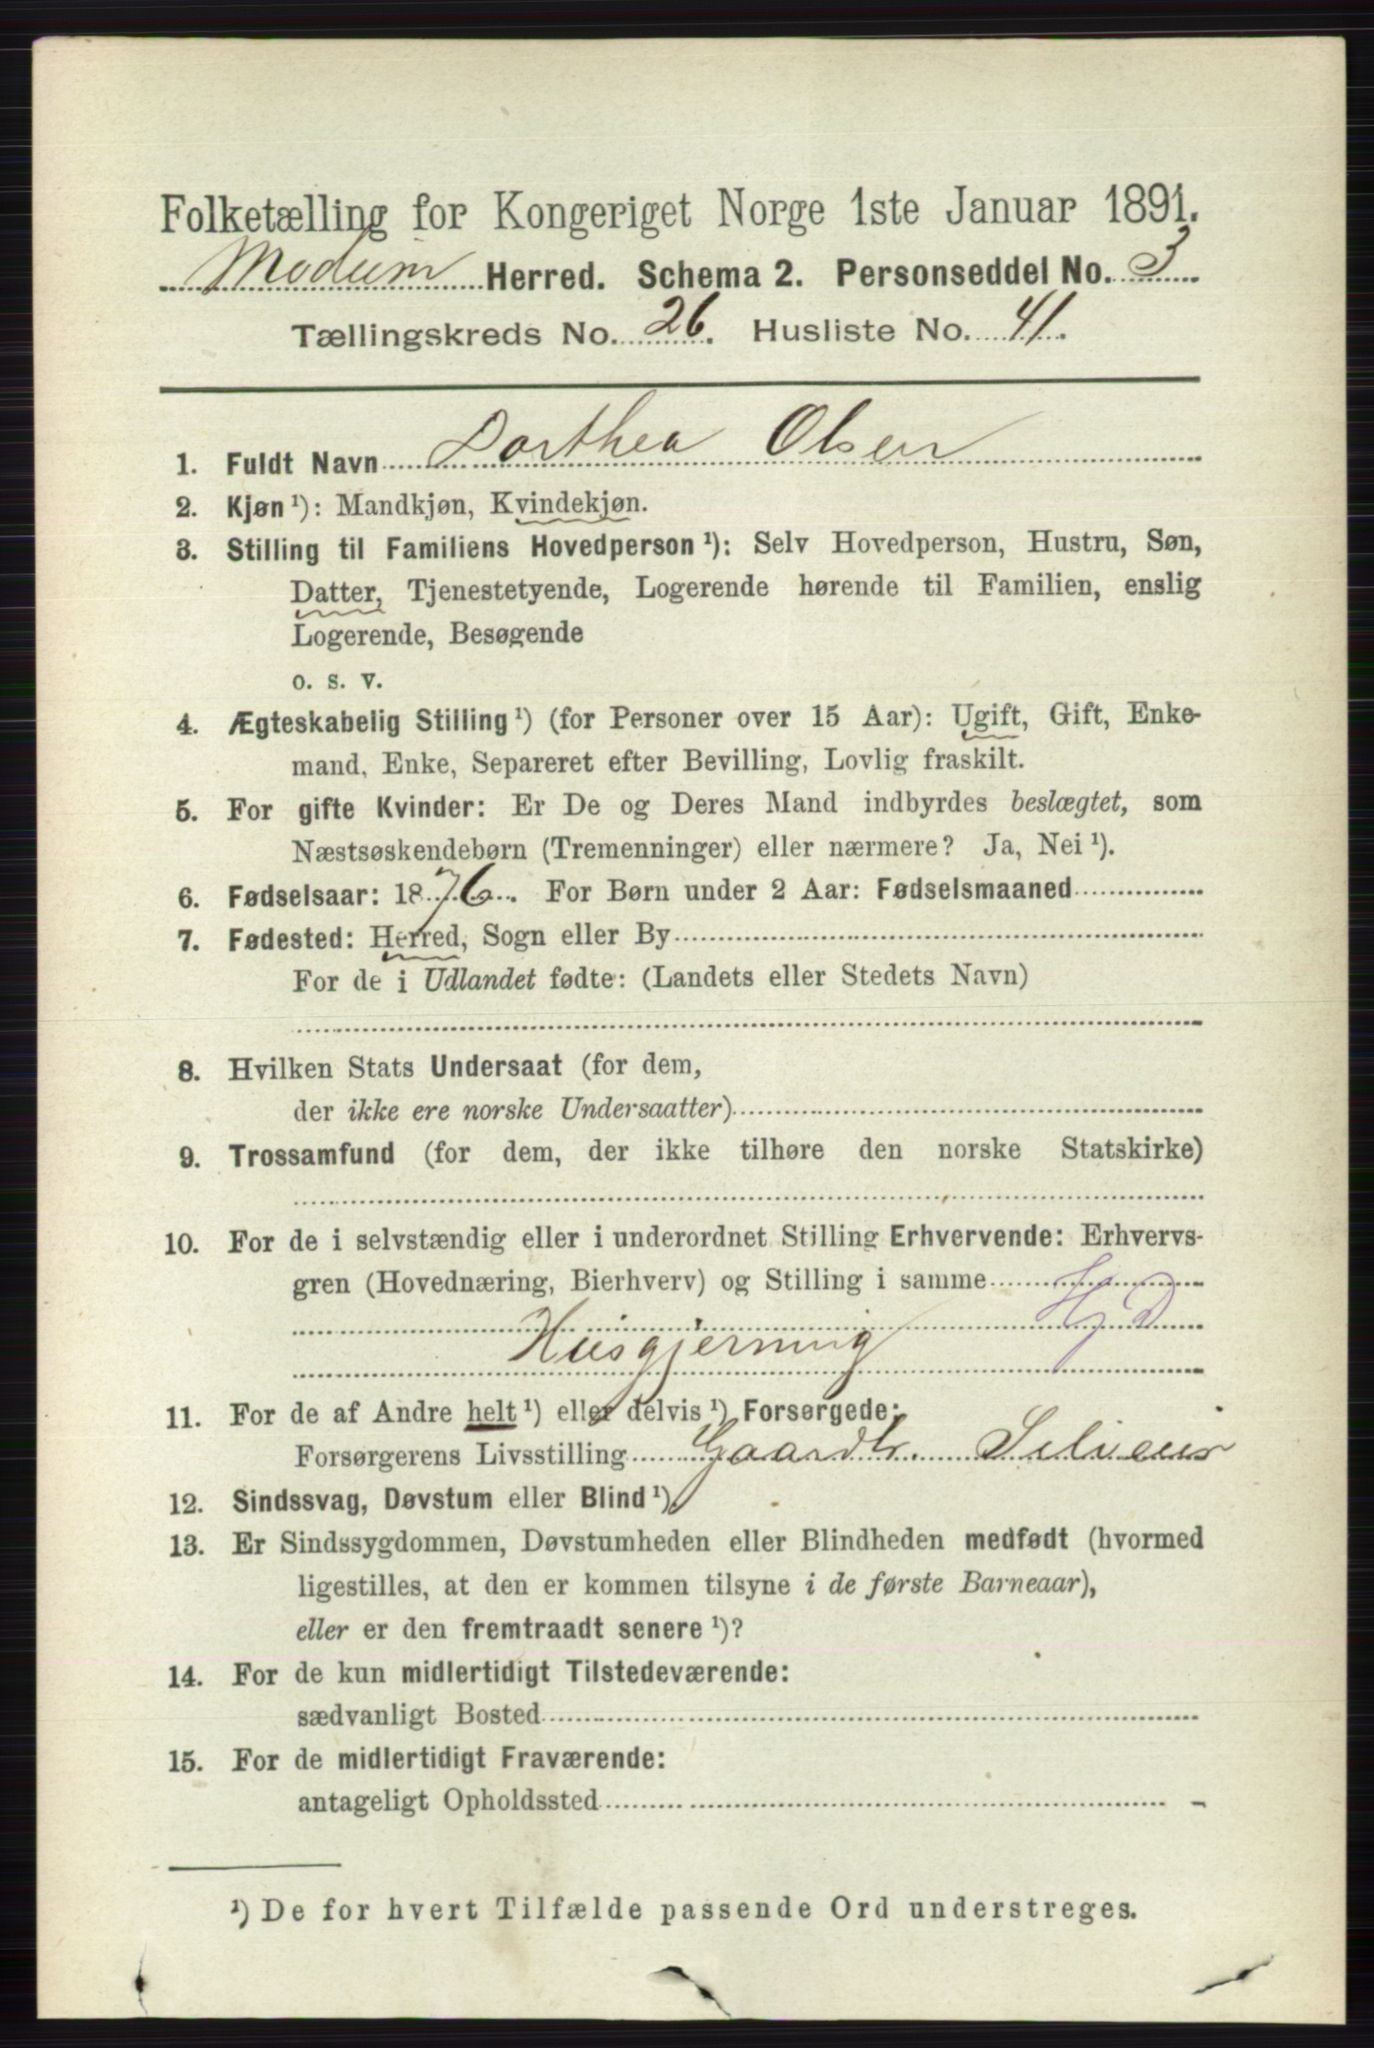 Folketælling for Kongeriget Norge 1ste Januar 1891.
Modum Herred. Schema 2. Personseddel No. 3
Tællingskreds No. 26. Husliste No. 41.
1. Fuldt Navn Dorthea Olsen
2. Kjøn ¹): Mandkjøn, Kvindekjøn.
3. Stilling til Familiens Hovedperson ¹): Selv Hovedperson, Hustru, Søn,
Datter, Tjenestetyende, Logerende hørende til Familien, enslig
Logerende, Besøgende
o. s. v.
4. Ægteskabelig Stilling ¹) (for Personer over 15 Aar): Ugift, Gift, Enke-
mand, Enke, Separeret efter Bevilling, Lovlig fraskilt.
5. For gifte Kvinder: Er De og Deres Mand indbyrdes beslægtet, som
Næstsøskendebørn (Tremenninger) eller nærmere? Ja, Nei ¹).
6. Fødselsaar: 1876. For Børn under 2 Aar: Fødselsmaaned
7. Fødested: Herred, Sogn eller By
For de i Udlandet fødte: (Landets eller Stedets Navn)
8. Hvilken Stats Undersaat (for dem,
der ikke ere norske Undersaatter)
9. Trossamfund (for dem, der ikke tilhøre den norske Statskirke)
10. For de i selvstændig eller i underordnet Stilling Erhvervende: Erhvervs-
gren (Hovednæring, Bierhverv) og Stilling i samme
Husgjerning Hj D
11. For de af Andre helt ¹) eller delvis ¹) Forsørgede:
Forsørgerens Livsstilling Gaardbr. Selveier
12. Sindssvag, Døvstum eller Blind ¹).
13. Er Sindssygdommen, Døvstumheden eller Blindheden medfødt (hvormed
ligestilles, at den er kommen tilsyne i de første Barneaar),
eller er den fremtraadt senere ¹)?
14. For de kun midlertidigt Tilstedeværende:
sædvanligt Bosted
15. For de midlertidigt Fraværende:
antageligt Opholdssted
¹) De for hvert Tilfælde passende Ord understreges.